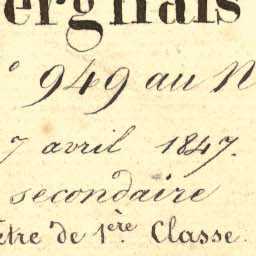 ergnais
° 949 au N
7 avril 1847.
secondaire
ètre de 1ère Classe.